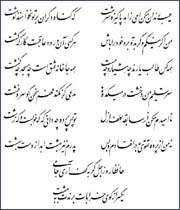 عیب رندان مکن ای زاهد پاکیزه سرشت که گناه دگران بر تو نخواهند نوشت
من اگر نیکم و گر بد تو برو خود را باش هر کسی آن درود عاقبت کار که کشت
همه کس طالب یارند چه هشیار و چه مست همه جا خانه عشق است چه مسجد چه کنشت
سر تسلیم من و خشت در میکده‌ها مدعی گر نکند فهم سخن گو سر و خشت
ناامیدم مکن از سابقه لطف ازل تو پس پرده چه دانی که که خوب است و که زشت
نه من از پرده تقوی به درافتادم و بس پدرم نیز بهشت ابد از دست بهشت
حافظا روز اجل گر به کف آری جامی
یکسر از کوی خرابات برندت به بهشت